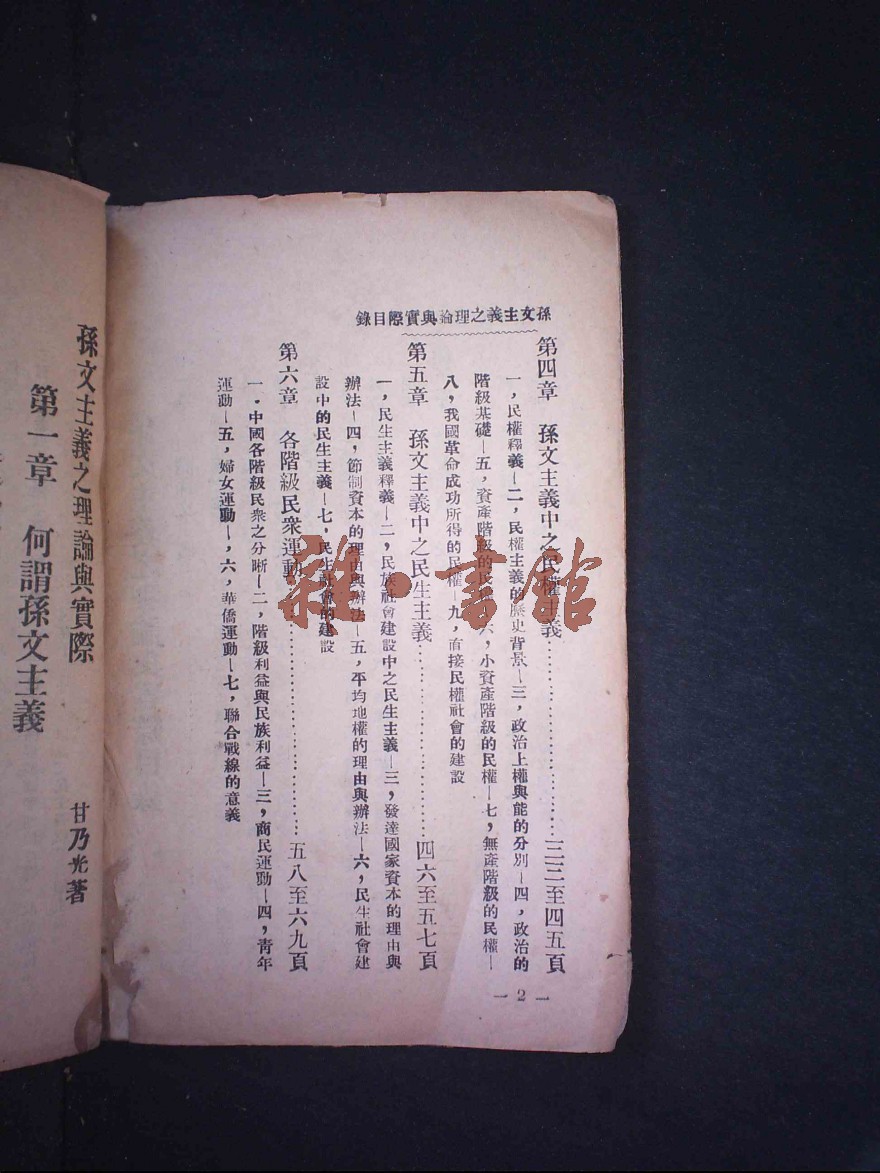 孫文主義之理論與實際目錄
第四章　孫文主義中之民權主義……三三至四五頁
一，民權釋義—二，民權主義的歷史背景—三，政治上權與能的分別—四，政治的
階級基礎—五，資產階級的民權—六，小資產階級的民權—七，無產階級的民權—
八，我國革命成功所得的民權—九，直接民權社會的建設
第五章　孫文主義中之民生主義……四六至五七頁
一，民生主義釋義—二，民族社會建設中之民生主義—三，發達國家資本的理由與
辦法—四，節制資本的理由與辦法—五，平均地權的理由與辦法—六，民生社會建
設中的民生主義—七，民生社會的建設
第六章　各階級民衆運動……五八至六九頁
一．中國各階級民衆之分晰—二，階級利益與民族利益—三，商民運動—四，靑年
運動—五，婦女運動—，六，華僑運動—七，聯合戰線的意義
— 2 —
孫文主義之理論與實際
甘乃光著
第一章　何謂孫文主義
雜·書館